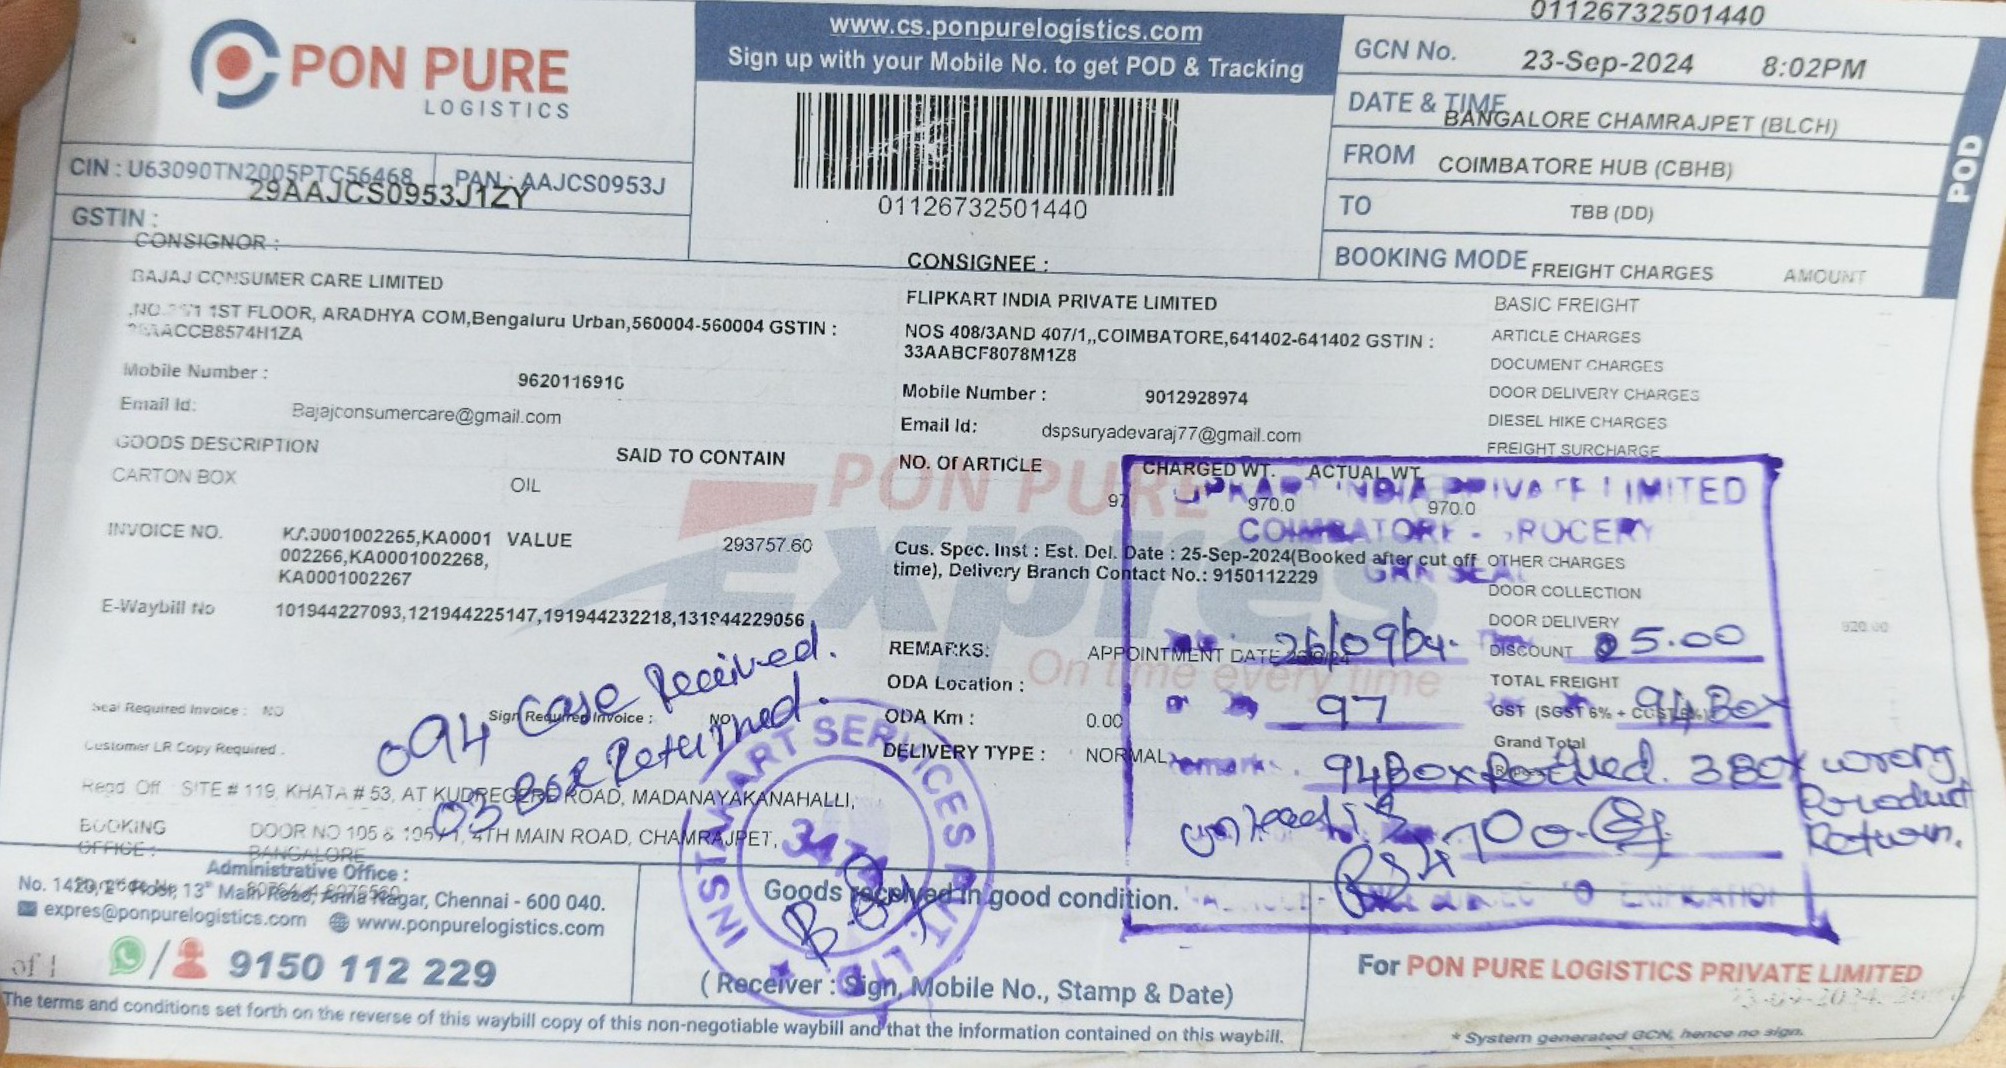 PON PURE
LOGISTICS
www.cs.ponpurelogistics.com
Sign up with your Mobile No. to get POD & Tracking
01126732501440
01126732501440
GCN No.
23-Sep-2024 8:02PM
DATE & TIME
BANGALORE CHAMRAJPET (BLCH)
FROM
COIMBATORE HUB (CBHB)
TO
TBB (DD)
BOOKING MODE
POD
CIN : U63090TN2005PTC56468
PAN : AAJCS0953J
29AAJCS0953J1ZY
GSTIN :
CONSIGNOR :
BAJAJ CONSUMER CARE LIMITED
1ST FLOOR, ARADHYA COM,Bengaluru Urban,560004-560004 GSTIN :
Mobile Number :
Email Id:
Bajajconsumercare@gmail.com
GOODS DESCRIPTION
SAID TO CONTAIN
CARTON BOX
OIL
INVOICE NO.
KA0001002265,KA0001
002266,KA0001002268,
KA0001002267
VALUE
293757.60
E-Waybill No
101944227093,121944225147,191944232218,131944229056
CONSIGNEE :
FLIPKART INDIA PRIVATE LIMITED
NOS 408/3AND 407/1,,COIMBATORE,641402-641402 GSTIN :
33AABCF8078M1Z8
Mobile Number :
9012928974
Email Id:
dspsuryadevaraj77@gmail.com
NO. Of ARTICLE
CHARGED WT.
ACTUAL WT.
97
970.0
970.0
Cus. Spec. Inst : Est. Del. Date : 25-Sep-2024(Booked after cut off
time), Delivery Branch Contact No.: 9150112229
REMARKS:
APPOINTMENT DATE
ODA Location :
ODA Km :
0.00
DELIVERY TYPE :
NORMAL
FREIGHT CHARGES
AMOUNT
BASIC FREIGHT
ARTICLE CHARGES
DOCUMENT CHARGES
DOOR DELIVERY CHARGES
DIESEL HIKE CHARGES
FREIGHT SURCHARGE
OTHER CHARGES
DOOR COLLECTION
DOOR DELIVERY
DISCOUNT
TOTAL FREIGHT
GST (SGST 6% +
Grand Total
PON PURE
Expres
On time every time
INDIA PRIVATE LIMITED
COIMBATORE -
26/09/24.
5.00
97
94 Box
94 Box Received. 3 Box wrong
Product
Return.
094 Case Received.
03 Box Returned.
Seal Required Invoice : NO
Sign Required Invoice : NO
Customer LR Copy Required :
Regd. Off : SITE # 119, KHATA # 53, AT KUDREGERE ROAD, MADANAYAKANAHALLI,
BOOKING
OFFICE :
DOOR NO 105 & 105/1, 4TH MAIN ROAD, CHAMRAJPET,
BANGALORE
INSTAMART SERVICES PVT. LTD.
Administrative Office :
Anna Nagar, Chennai - 600 040.
expres@ponpurelogistics.com
www.ponpurelogistics.com
9150 112 229
of 1
Goods received in good condition.
( Receiver : Sign, Mobile No., Stamp & Date)
For PON PURE LOGISTICS PRIVATE LIMITED
* System generated GCN, hence no sign.
The terms and conditions set forth on the reverse of this waybill copy of this non-negotiable waybill and that the information contained on this waybill.